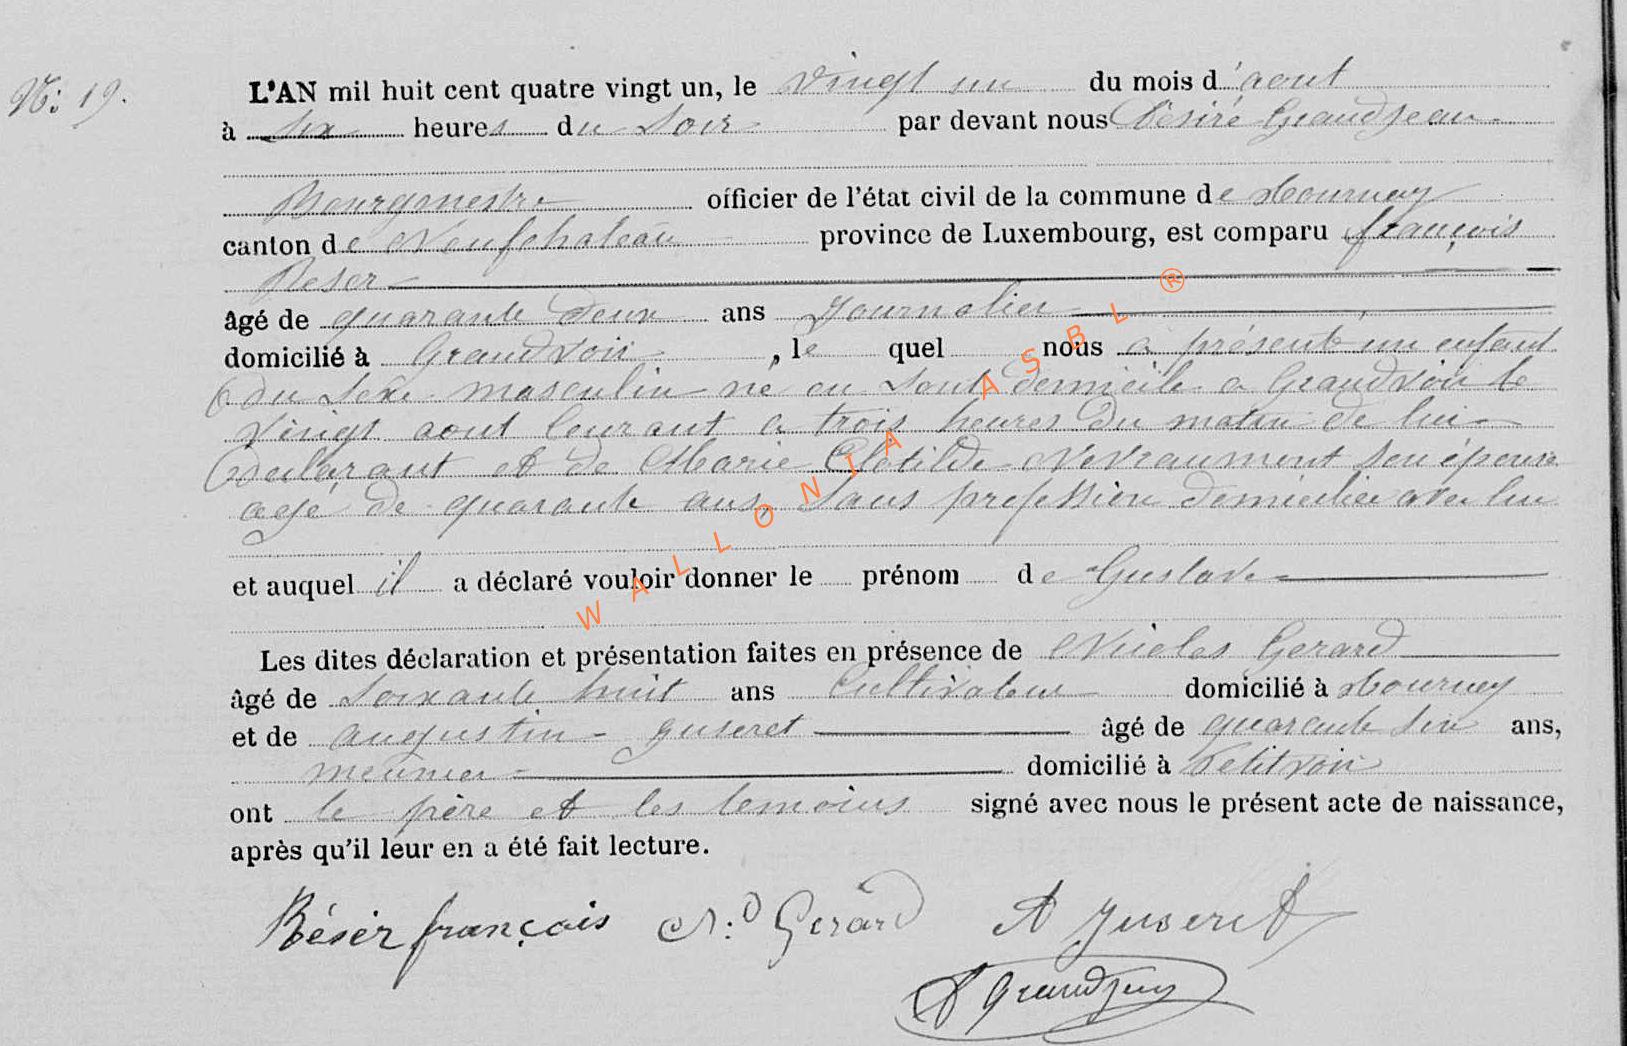 N: 19.
L'AN mil huit cent quatre vingt un, le vingt un du mois d'aout
à six heures du Soir par devant nous Désiré Grandjean
Bourgmestre officier de l'état civil de la commune de Tournay
canton de Neufchateau province de Luxembourg, est comparu françois
Beser
âgé de quarante deux ans Journalier
domicilié à Grandvoir, le quel nous a présenté un enfant
du sexe masculin né en son domicile a Grandvoir le
vingt aout courant a trois heures du matin de lui
Déclarant et de Marie Clotilde Nevraumont son épouse
agé de quarante ans, sans profession domiciliée avec lui
et auquel il a déclaré vouloir donner le prénom de Gustave
Les dites déclaration et présentation faites en présence de Nicolas Gerard
âgé de soixante huit ans Cultivateur domicilié à Tournay
et de augustin Juseret âgé de quarante six ans,
meunier domicilié à Petitvoir
ont le père et les temoins signé avec nous le présent acte de naissance,
après qu'il leur en a été fait lecture.
Bésér françois N:D Gerard A Juseret
D Grandjean
WALLONIA ASBL ®